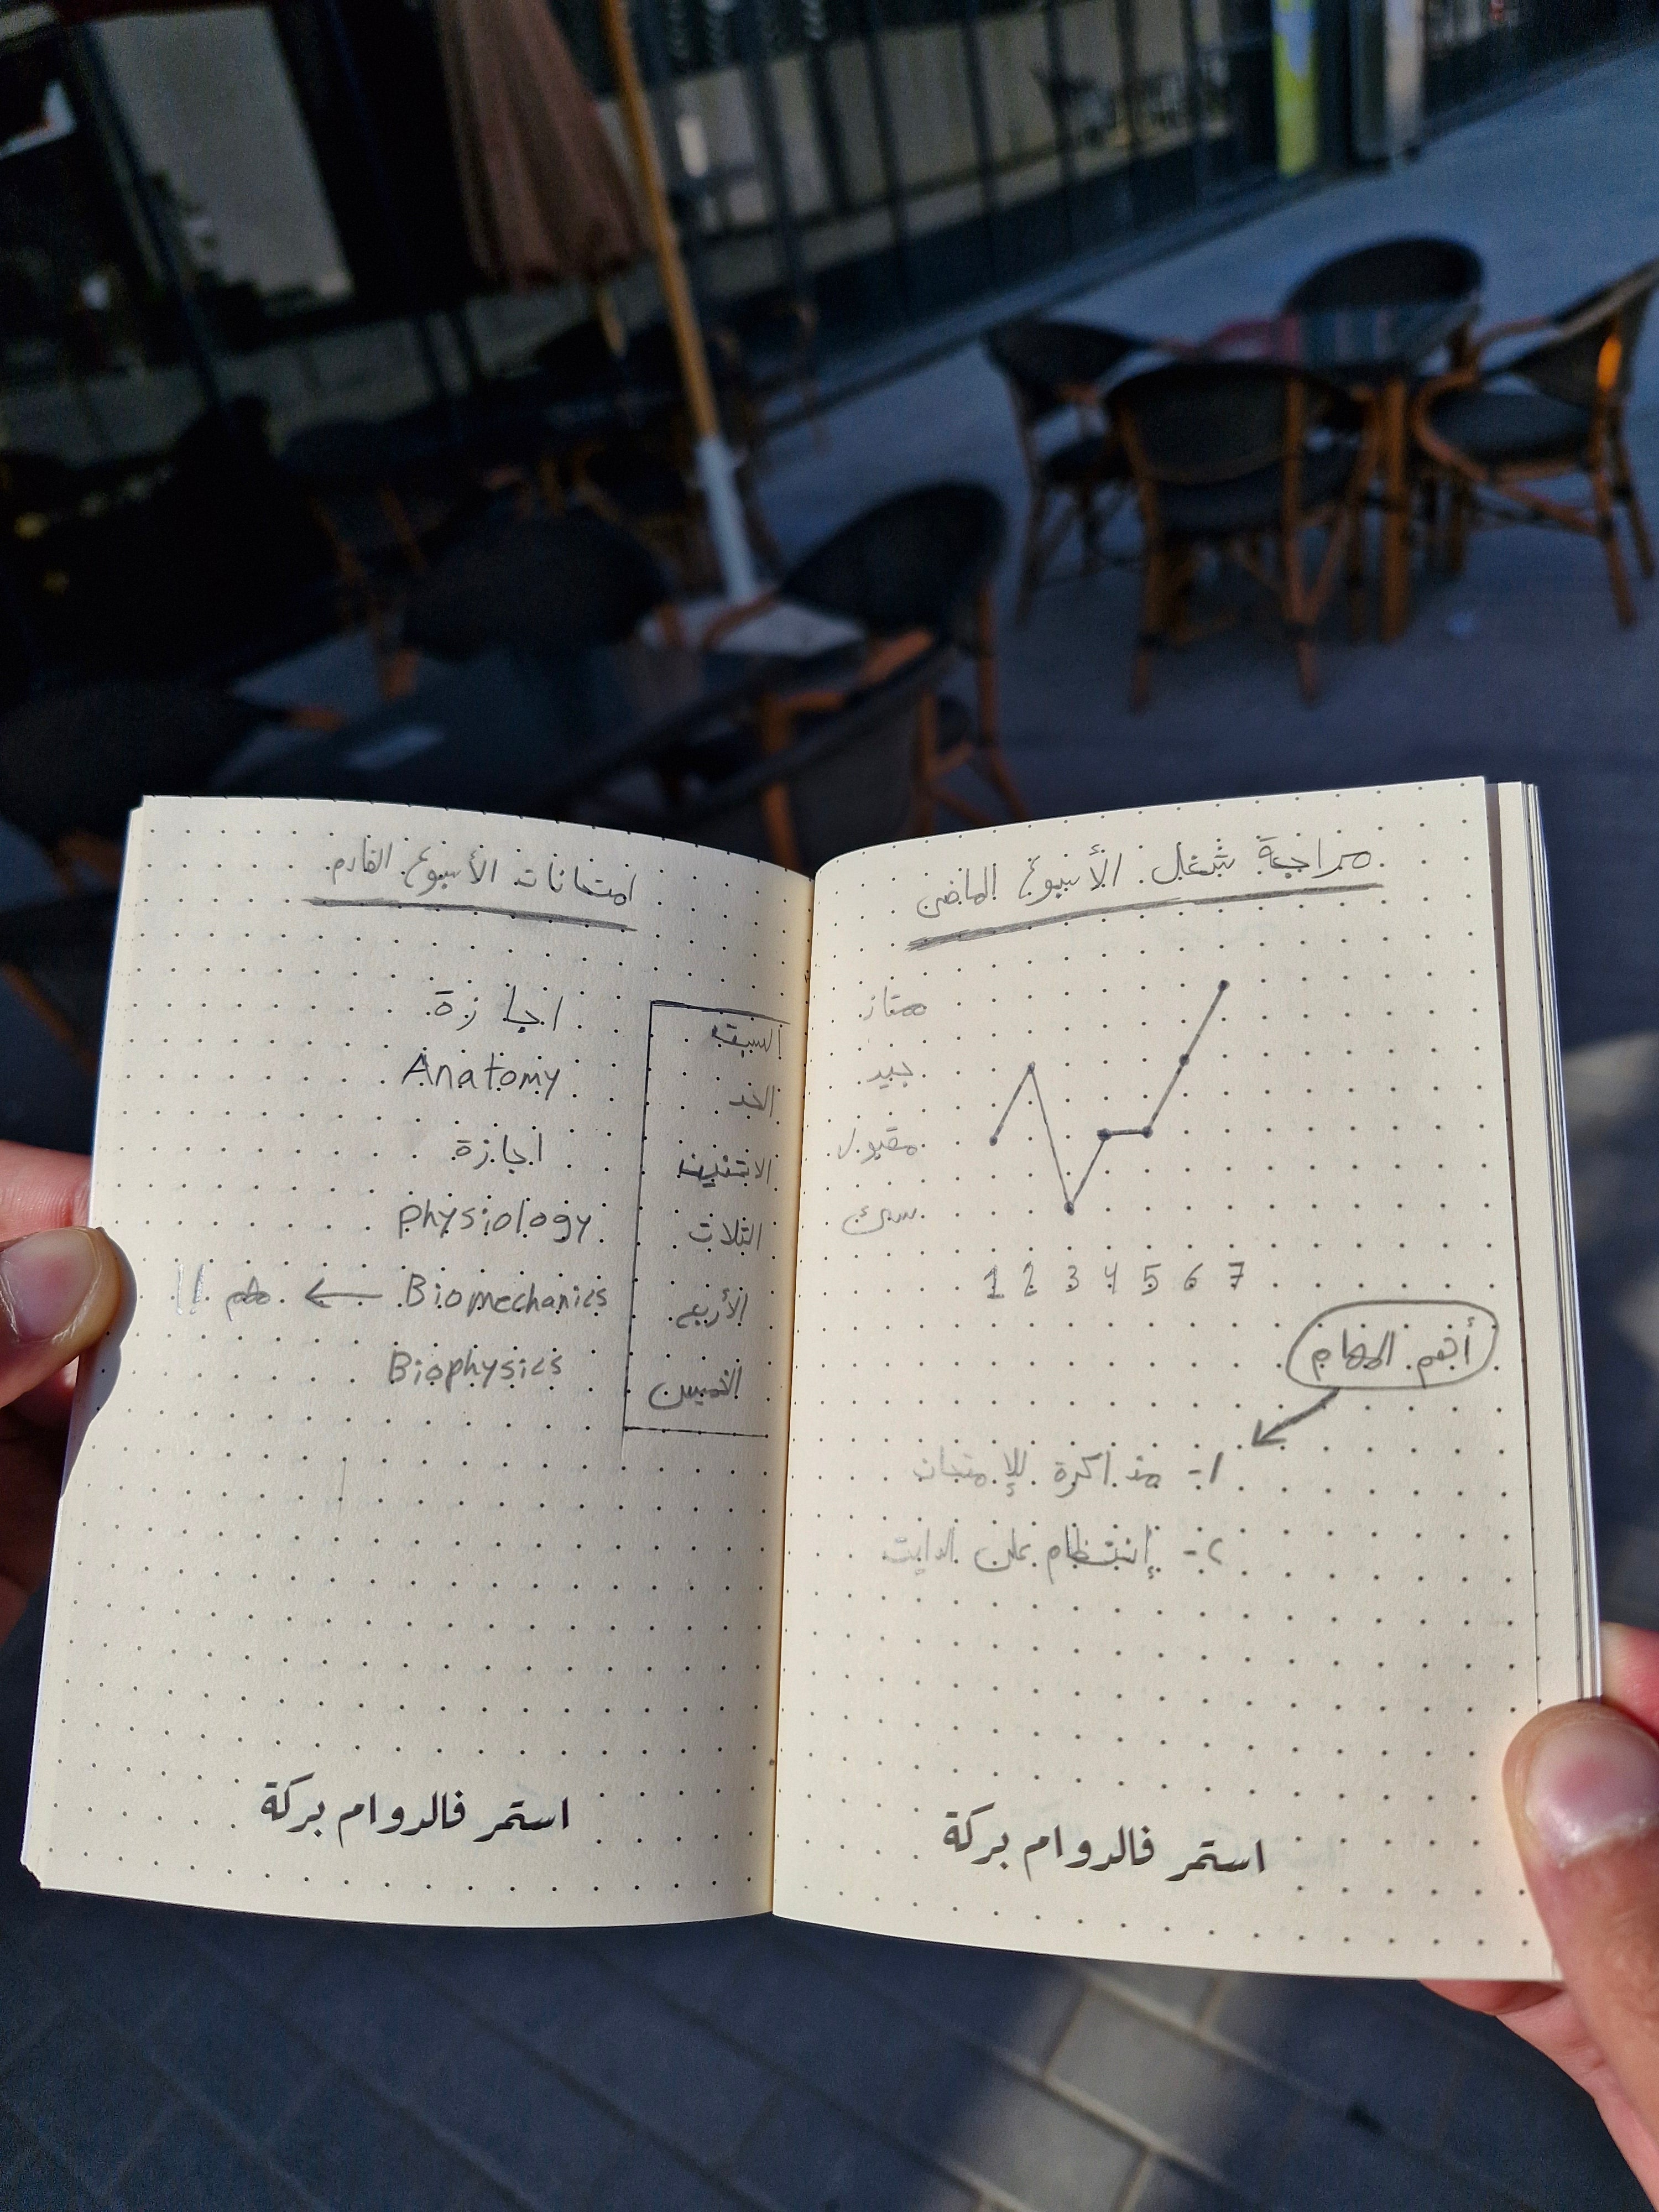 مراجعة شغل الأسبوع الماضى
ممتاز
جيد
مقبول
سئ
1 2 3 4 5 6 7
أهم المهام
1- مذاكرة للإمتحان
٢- إنتظام على الدايت
استمر فالدوام بركة
امتحانات الأسبوع القادم
السبت اجازة
الحد Anatomy
الاتنين اجازة
التلات physiology
الأربع Biomechanics ← مهم !!
الخميس Biophysics
استمر فالدوام بركة